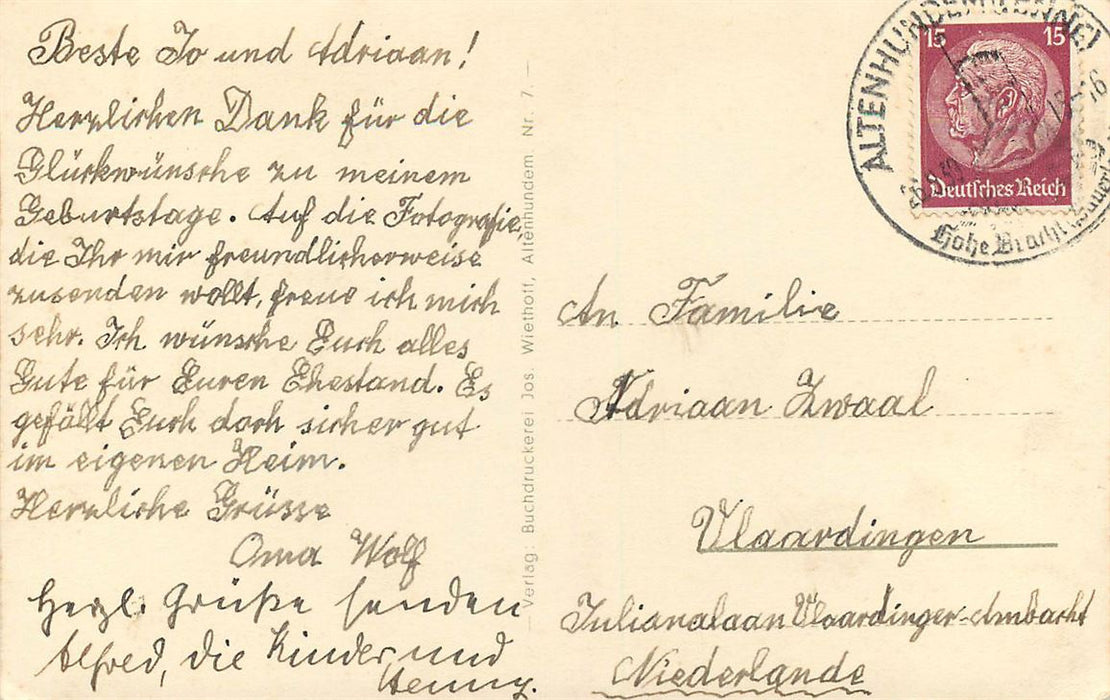 Beste Jo und Adriaan!
Herzlichen Dank für die
Glückwünsche zu meinem
Geburtstage. Auf die Fotografie,
die Ihr mir freundlicherweise
zusenden wollt, freue ich mich
sehr. Ich wünsche Euch alles
Gute für Euren Ehestand. Es
gefällt Euch doch sicher gut
im eigenen Heim.
Herzliche Grüsse
Oma Wolf
Herzl. Grüße senden
Alfred, die Kinder und
Henny.
Verlag: Buchdruckerei Jos. Wiethoff, Altenhundem. Nr. 7.
ALTENHUNDEM (LENNE)
15 15
Deutsches Reich
Hohe Bracht
An Familie
Adriaan Zwaal
Vlaardingen
Julianalaan Vlaardinger-Ambacht
Niederlande